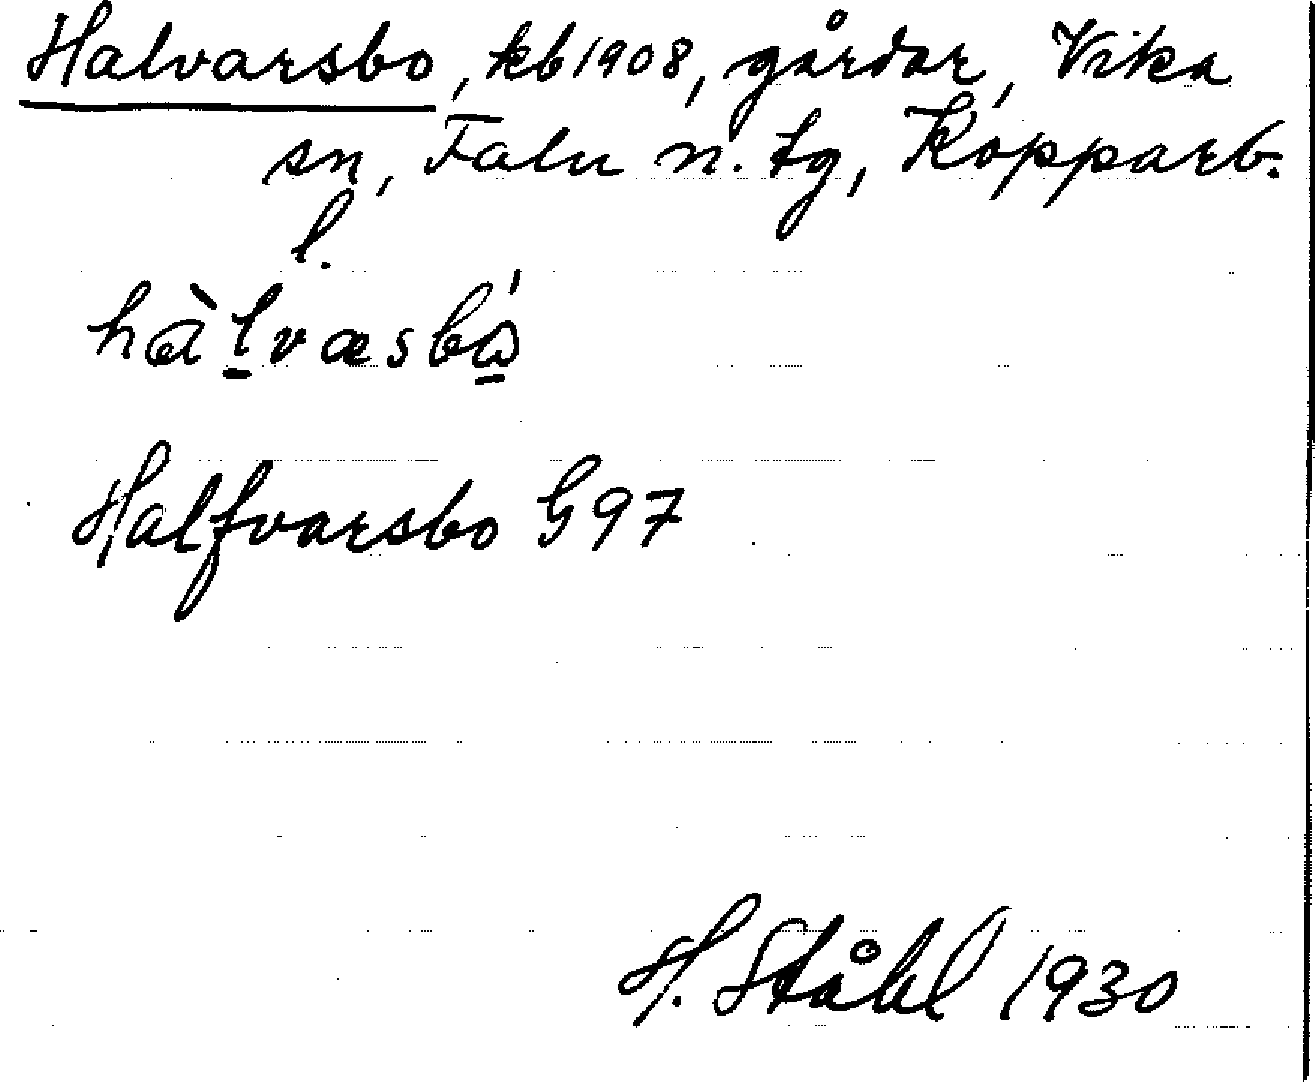 Halvarsbo, kb 1908, gårdar, Vika
sn, Falu n. tg, Kopparb.
l.
hàlvæsbǻ
Halfvarsbo G97
H. Ståhl 1930